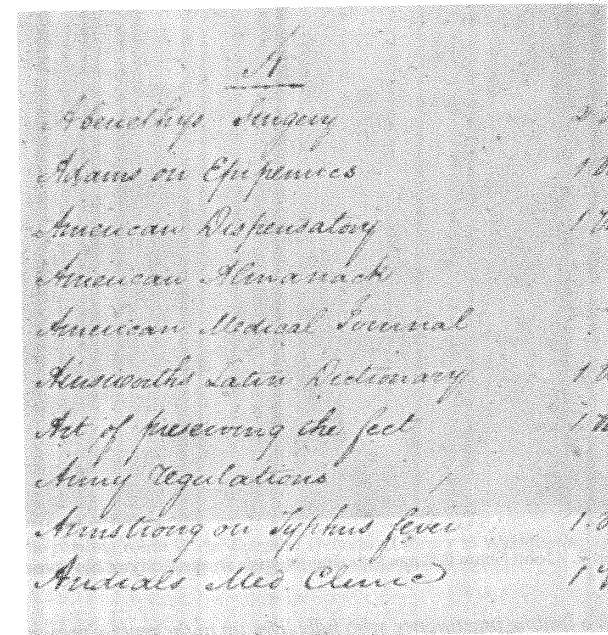 A
Abenethys Surgery
Adams on Epipemics
American Dispensatory
American Almanack
American Medical Journal
Ainsworths Latin Dictionary
Art of preserving the feet
Army regulations
Armstrong on Typhus fever
Andrals Med. Clinic